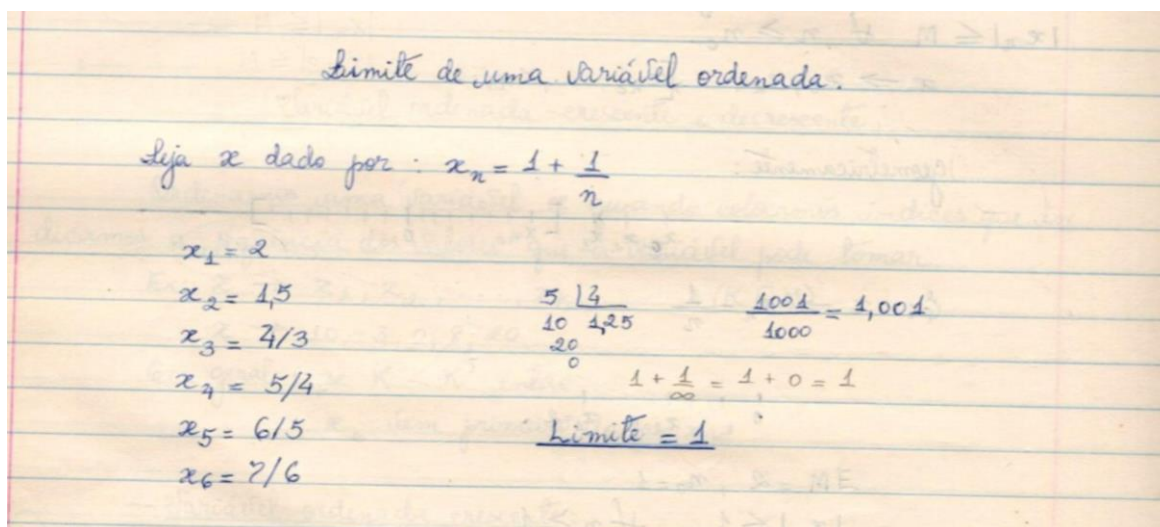 Limite de uma variável ordenada.
Seja x dado por: xₙ = 1 + 1/n
x₁ = 2
x₂ = 1,5
x₃ = 4/3
x₄ = 5/4
x₅ = 6/5
x₆ = 7/6
5 |4
10 1,25
20
0
1001/1000 = 1,001
1 + 1/∞ = 1 + 0 = 1
Limite = 1